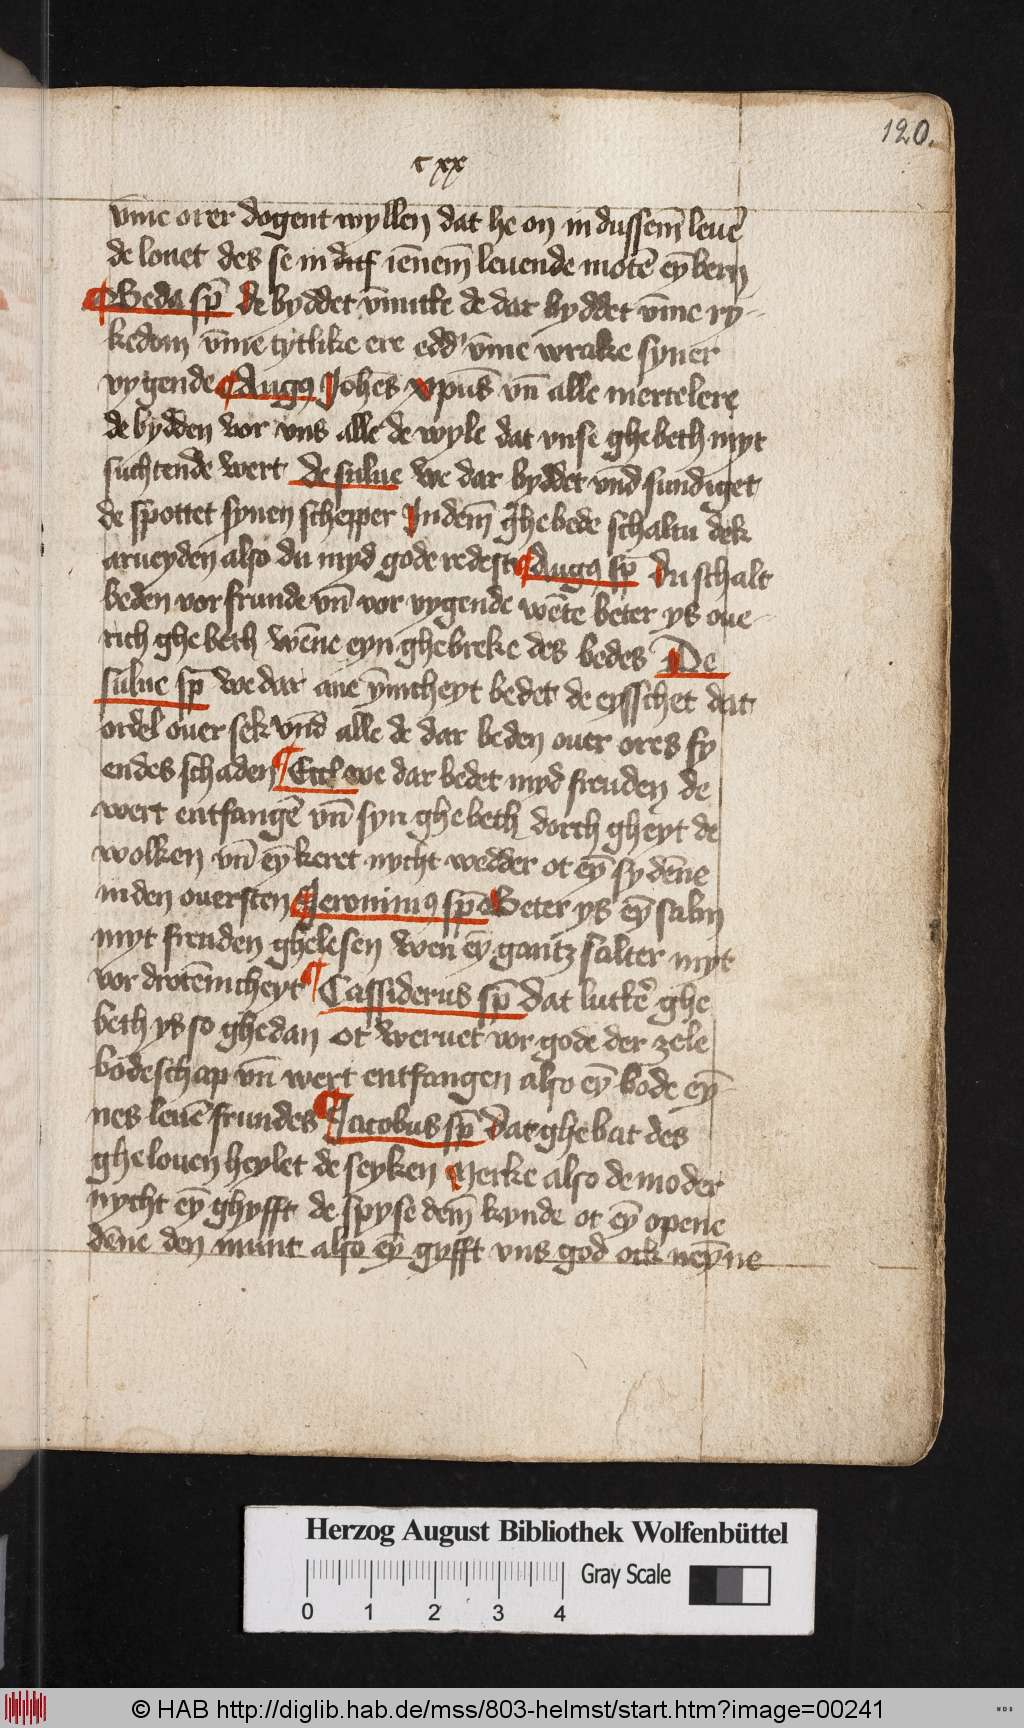 120.
cxx
vm̄e orer dogent wyllen dat he on in dussem̄ leuē
de louet des se in ditſ iēnem̄ leuende motē ey̅ bern
¶ Beda sp̄ De byddet vnnutte de dar byddet vm̄e ry-
kedom vm̄e tytlike ere edd' vm̄e wrake syner
vygende ¶ Augꝰ Johēs xp̄us vn̄ alle mertelere
de bydden vor vns alle de wyle dat vnse ghebeth myt
suchtende wert de sulue we dar byddet vnd sundiget
de spottet synen schepper Indem̄ ghebede schaltu dek
arueyden also du myd gode redest ¶ Augꝰ sp̄ Du schalt
beden vor frunde vn̄ vor vygende wēte beter ys oue-
rich ghebeth wēne eyn ghebreke des bedes De
sulue sp̄ we dar ane ynnicheyt bedet de eysschet dat
ordel ouer sek vnd alle de dar beden ouer ores fy
endes schaden ¶ Eccl we dar bedet myd freuden de
wert entfangē vn̄ syn ghebeth dorch gheyt de
wolken vn̄ ey̅ keret nycht wedder ot ey̅ sy dēne
in den ouersten ¶ Jeronimꝰ sp̄ Beter ys ey̅ salm
myt freuden ghelesen wen ey̅ gantz salter myt
vor drotēnicheyt ¶ Cassiderus sp̄ Dat luttē ghe
beth ys so ghedan ot weruet vor gode der zele
bodeschap vn̄ wert entfangen also ey̅ bode ey̅-
nes leuē frundes ¶ Jacobus sp̄ Dat ghebat des
ghelouen heylet de seyken Merke also de moder
nycht ey̅ ghyfft de spyse dem̄ kynde ot ey̅ opene
dēne den munt also ey̅ gyfft vns god ock ney̅ne
Herzog August Bibliothek Wolfenbüttel
Gray Scale
0 1 2 3 4
© HAB http://diglib.hab.de/mss/803-helmst/start.htm?image=00241